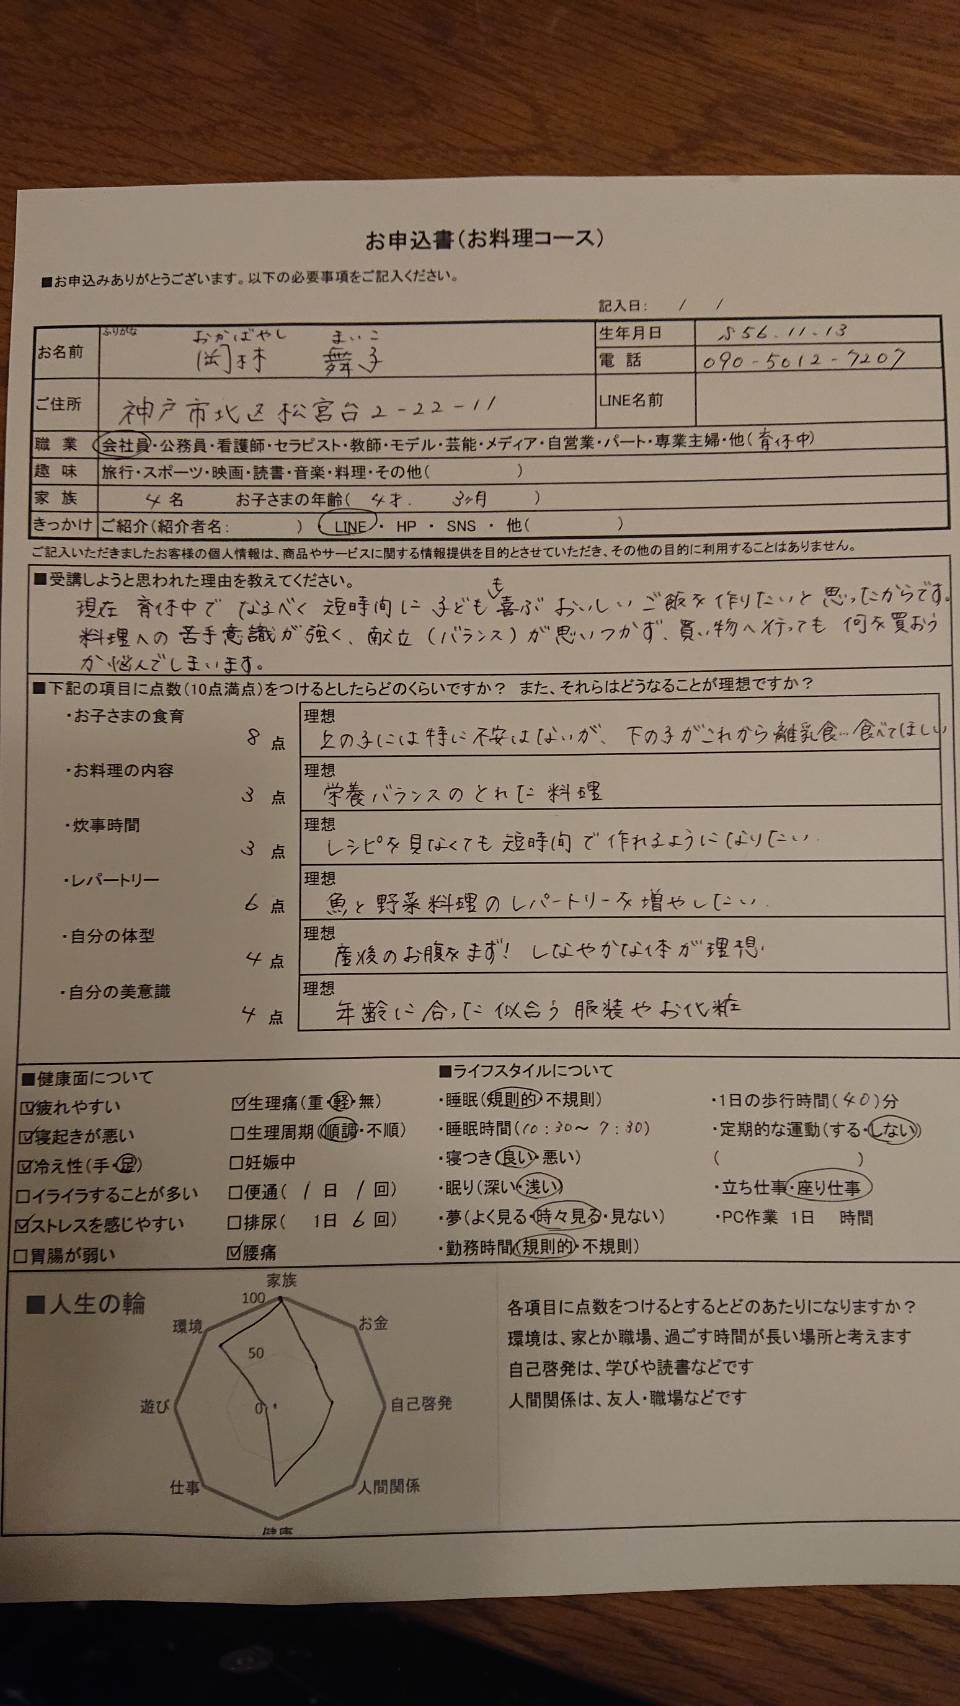 お申込書(お料理コース)
■お申込みありがとうございます。以下の必要事項をご記入ください。
記入日: / /
ふりがな おかばやし まいこ
お名前 岡林 舞子
生年月日 S56.11.13
電話 090-5012-7207
ご住所 神戸市北区松宮台2-22-11
LINE名前
職業 会社員・公務員・看護師・セラピスト・教師・モデル・芸能・メディア・自営業・パート・専業主婦・他(育休中)
趣味 旅行・スポーツ・映画・読書・音楽・料理・その他( )
家族 4名 お子さまの年齢( 4才. 3ヶ月 )
きっかけ ご紹介(紹介者名: ) LINE・ HP ・ SNS ・ 他( )
ご記入いただきましたお客様の個人情報は、商品やサービスに関する情報提供を目的とさせていただき、その他の目的に利用することはありません。
■受講しようと思われた理由を教えてください。
現在 育休中で なるべく 短時間に 子どもも喜ぶ おいしい ご飯を作りたいと思ったからです。
料理への苦手意識が強く、献立(バランス)が思いつかず、買い物へ行っても 何を買おう
か悩んでしまいます。
■下記の項目に点数(10点満点)をつけるとしたらどのくらいですか? また、それらはどうなることが理想ですか?
・お子さまの食育 8点 理想 上の子には特に不安はないが、下の子がこれから離乳食…食べてほしい
・お料理の内容 3点 理想 栄養バランスのとれた料理
・炊事時間 3点 理想 レシピを見なくても短時間で作れるようになりたい.
・レパートリー 6点 理想 魚と野菜料理のレパートリーを増やしたい.
・自分の体型 4点 理想 産後のお腹をまず! しなやかな体が理想.
・自分の美意識 4点 理想 年齢に合った似合う服装やお化粧
■健康面について
☑疲れやすい
☑寝起きが悪い
☑冷え性(手・足)
□イライラすることが多い
☑ストレスを感じやすい
□胃腸が弱い
☑生理痛(重・軽・無)
□生理周期(順調・不順)
□妊娠中
□便通( 1日 1回)
□排尿( 1日 6回)
☑腰痛
■ライフスタイルについて
・睡眠(規則的・不規則)
・睡眠時間(10:30〜7:30)
・寝つき(良い・悪い)
・眠り(深い・浅い)
・夢(よく見る・時々見る・見ない)
・勤務時間(規則的・不規則)
・1日の歩行時間(40)分
・定期的な運動(する・しない)
( )
・立ち仕事・座り仕事
・PC作業 1日 時間
■人生の輪
家族
お金
自己啓発
人間関係
健康
仕事
遊び
環境
100
50
0
各項目に点数をつけるとするとどのあたりになりますか?
環境は、家とか職場、過ごす時間が長い場所と考えます
自己啓発は、学びや読書などです
人間関係は、友人・職場などです